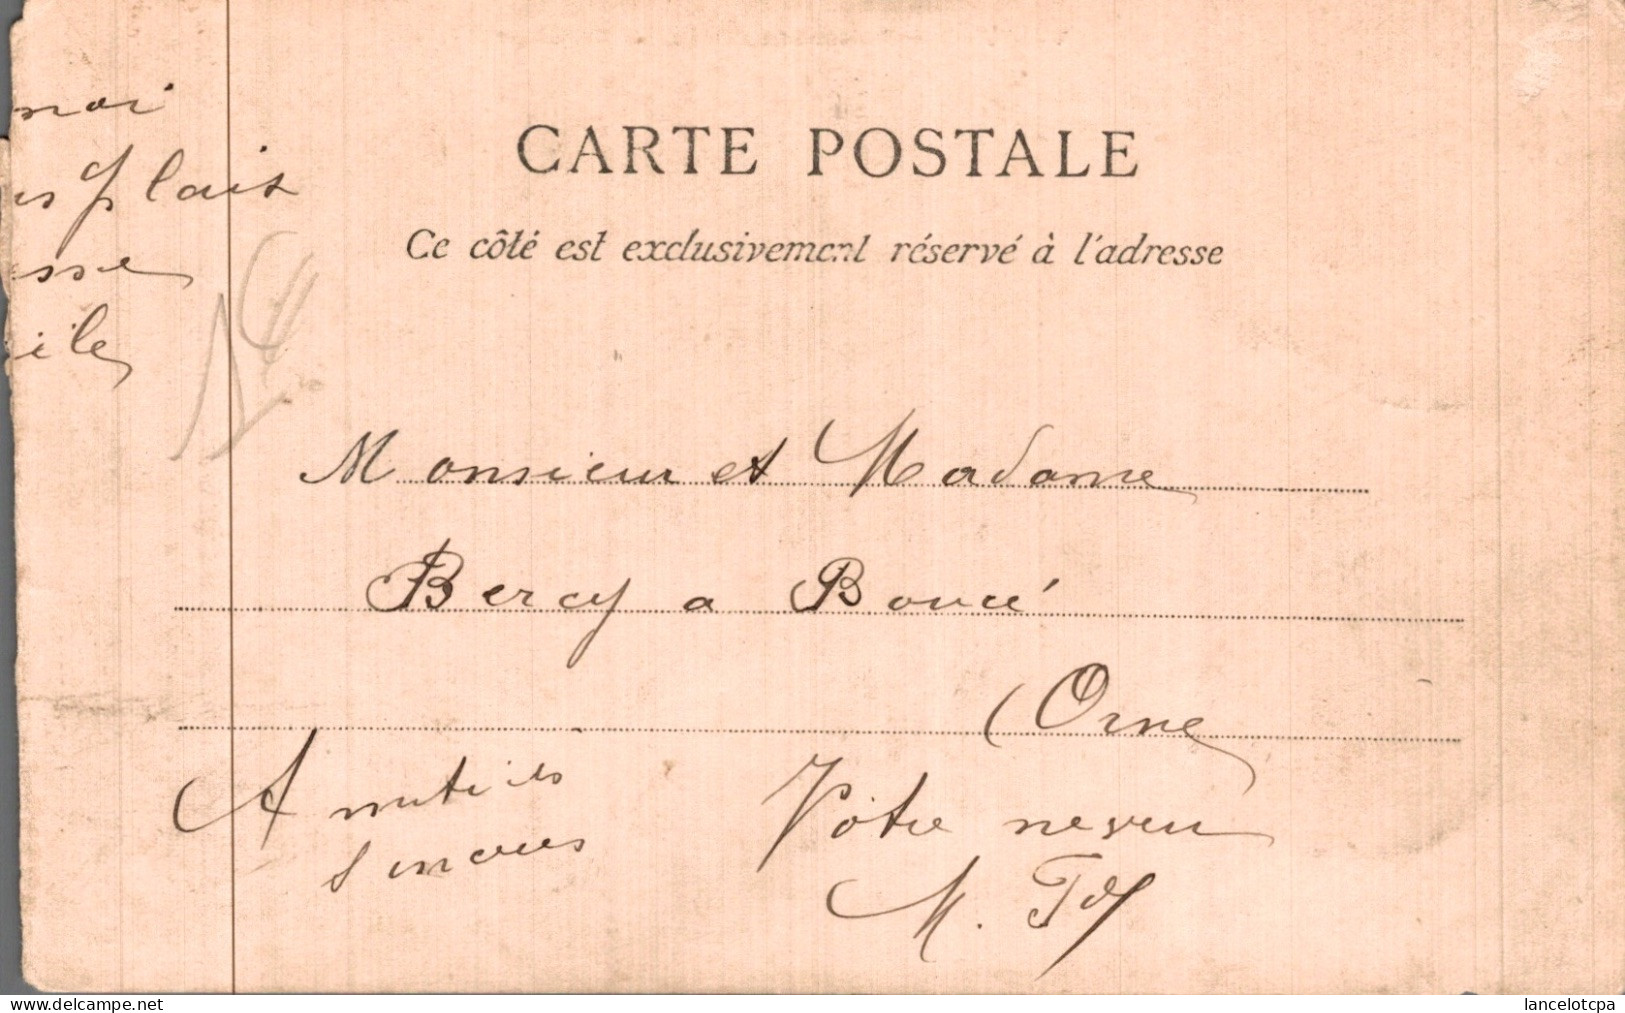 CARTE POSTALE
Ce côté est exclusivement réservé à l'adresse
moi
plais
sse
ile
Monsieur et Madame
Bercy a Boucé
(Orne
Amitiés
sincères
Vôtre neveu
M.
www.delcampe.net
lancelotcpa